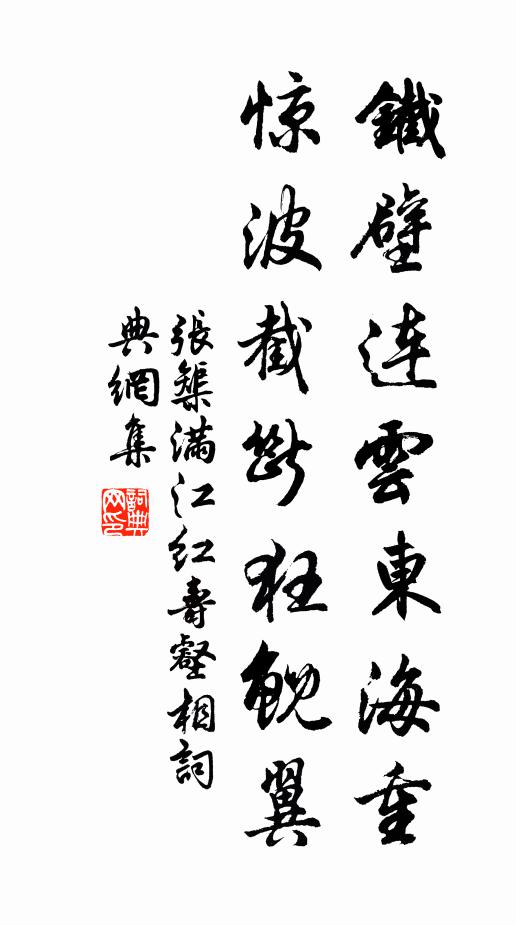 鐵壁連雲東海重
惊波截斷狂鲵翼
張榘滿江红壽壑相詞
典網集
詞典网印